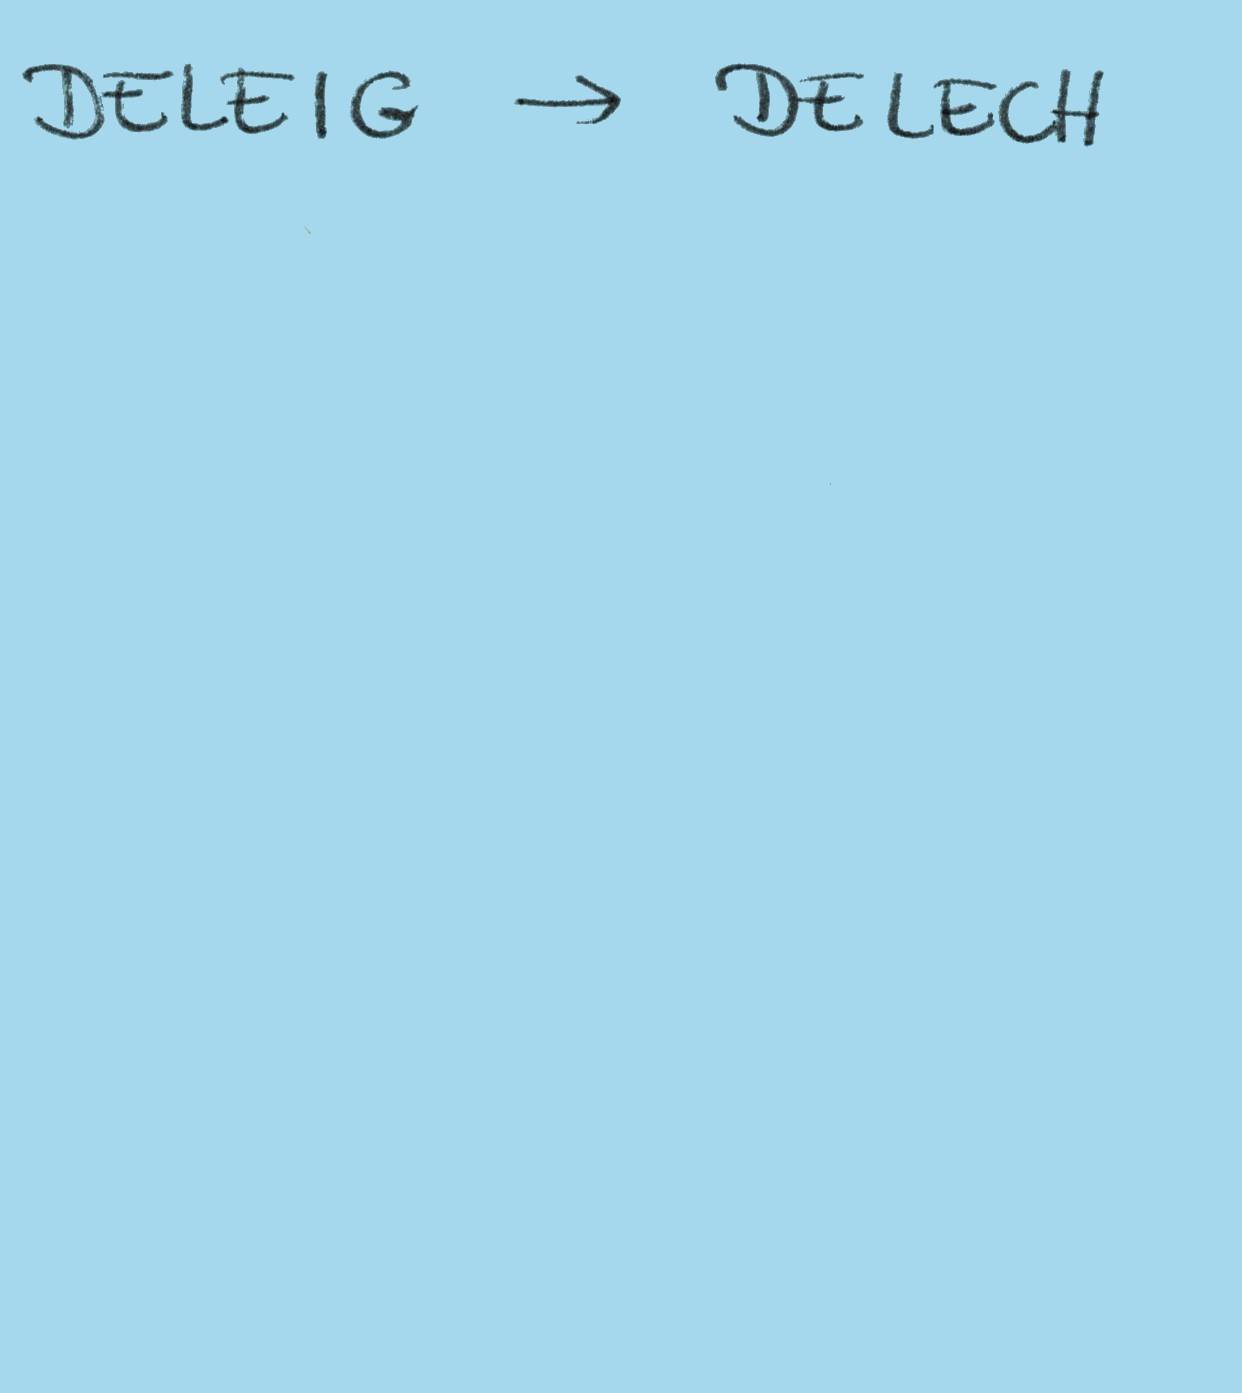 DELEIG → DELECH